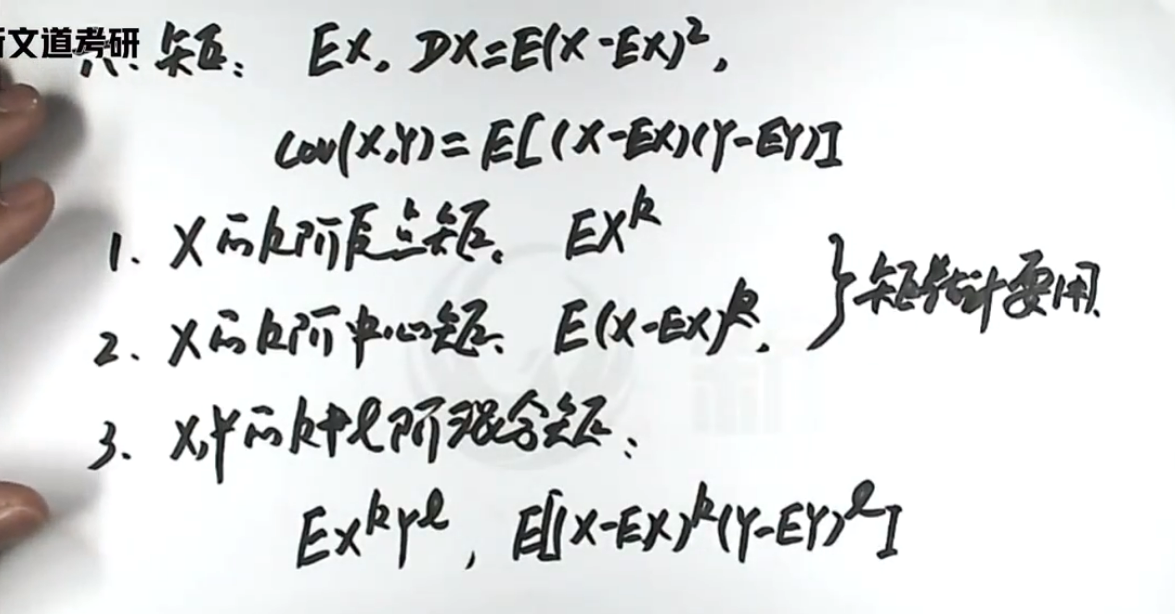 新文道考研
六、矩: EX, DX=E(X-EX)²,
Cov(X,Y)=E[(X-EX)(Y-EY)]
1. X的k阶原点矩. EXᵏ
2. X的k阶中心矩. E(X-EX)ᵏ.
} 矩估计要用.
3. X,Y的k+l阶混合矩:
EXᵏYˡ, E[(X-EX)ᵏ(Y-EY)ˡ]